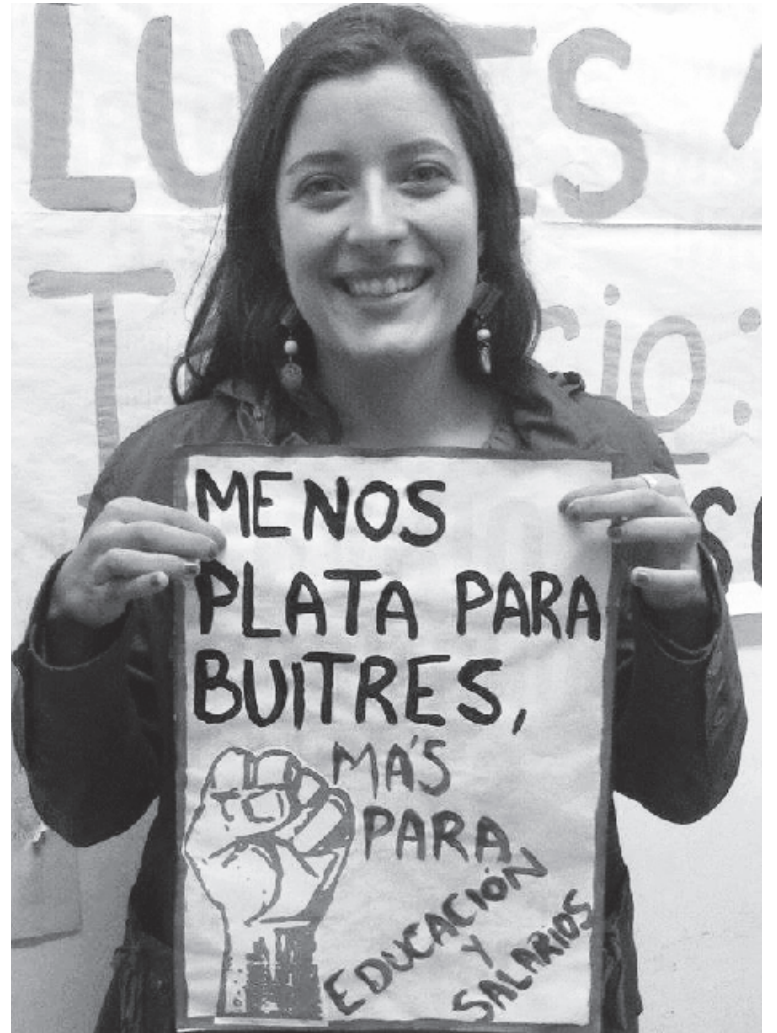 LU ES
T cio:
MENOS
PLATA PARA
BUITRES,
MÁS
PARA
EDUCACIÓN
Y
SALARIOS